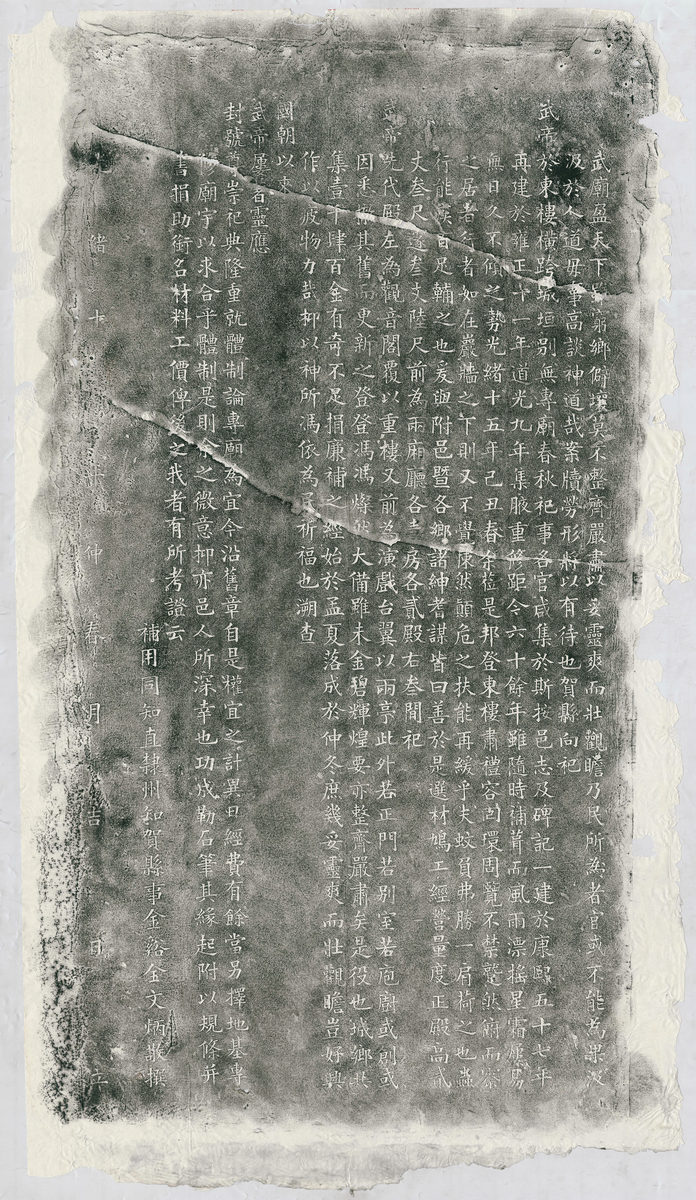 武廟盈天下雖窮鄉僻壤莫不整齊嚴肅以妥靈爽而壯觀瞻乃民所為者官或不能為果汲
汲於人道毋事高談神道哉案牘勞形將以有待也賀縣向祀
武帝於東樓橫跨城垣別無專廟春秋祀事各官咸集於斯按邑志及碑記一建於康熙五十七年
再建於雍正十一年道光九年集腋重修距今六十餘年雖隨時補葺而風雨漂搖星霜屢易
無日久不傾之勢光緒十五年己丑春余蒞是邦登東樓肅禮容周環周覽不禁蹙然
之居者行者如在巖牆之下則又不覺悚然顛危之扶能再緩乎夫蚊負弗勝一肩荷之也蟲
行能 日足輔之也爰與附邑暨各鄉諸紳耆謀皆曰善於是選材鳩工經營量度正殿高貳
丈叁尺邃叁丈陸尺前為兩廂廳各壹房各貳殿右叁間祀
武帝先代殿左為觀音閣覆以重樓又前為演戲台翼以兩亭此外若正門若別室若庖廚或創或
因悉撤其舊而更新之登登馮馮燦然大備雖未金碧輝煌要亦整齊嚴肅矣是役也城鄉共
集壹千肆百金有奇不足捐廉補之經始於孟夏落成於仲冬庶幾妥靈爽而壯觀瞻豈好興
作以疲物力哉抑以神所馮依為民祈福也溯查
國朝以來
武帝屢著靈應
封號尊崇祀典隆重就體制論專廟為宜今沿舊章自是權宜之計異日經費有餘當另擇地基專
修廟宇以求合乎體制是則余之微意抑亦邑人所深幸也功成勒石筆其緣起附以規條并
書捐助銜名材料工價俾後之我者有所考證云
補用同知直隸州知賀縣事金谿金文炳敬撰
光緒十 仲春月 吉日立